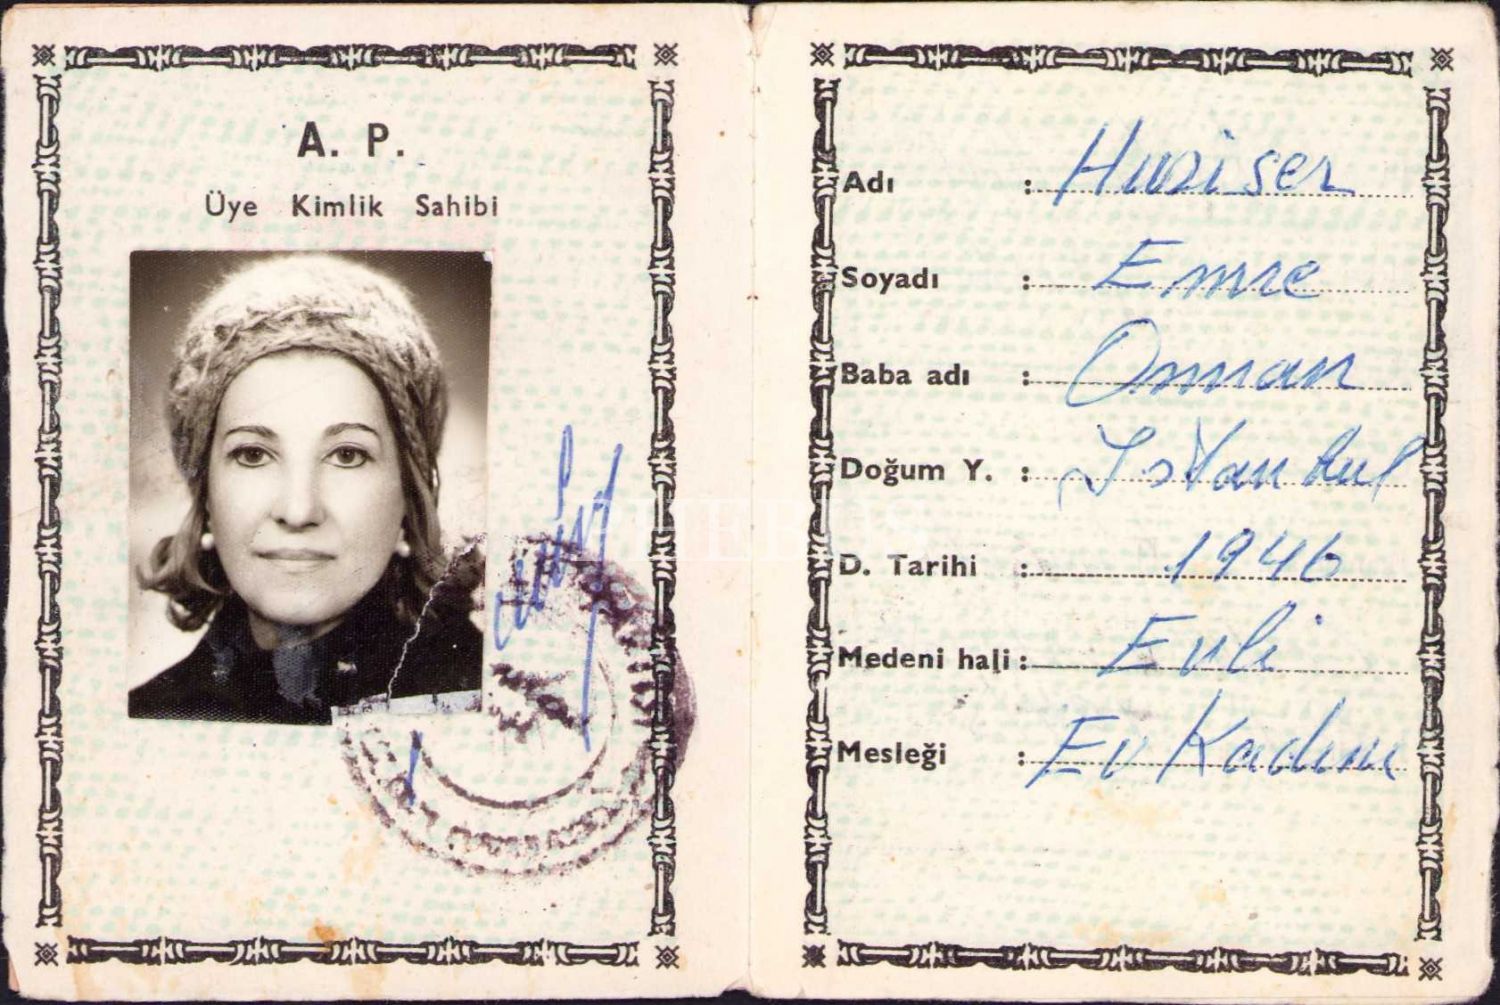 A. P.
Üye Kimlik Sahibi
PHEBUS
Adı :
Soyadı : Emre
Baba adı : Osman
Doğum Y. : İstanbul
D. Tarihi : 1946
Medeni hali : Evli
Mesleği : Ev Kadını